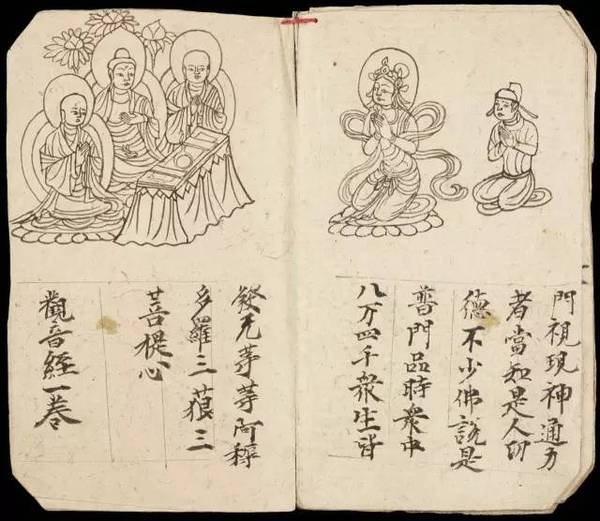 門視現神通力
者當知是人功
德不少佛說是
普門品時衆中
八万四千衆生皆
發无等等阿耨
多羅三藐三
菩提心
觀音經一卷